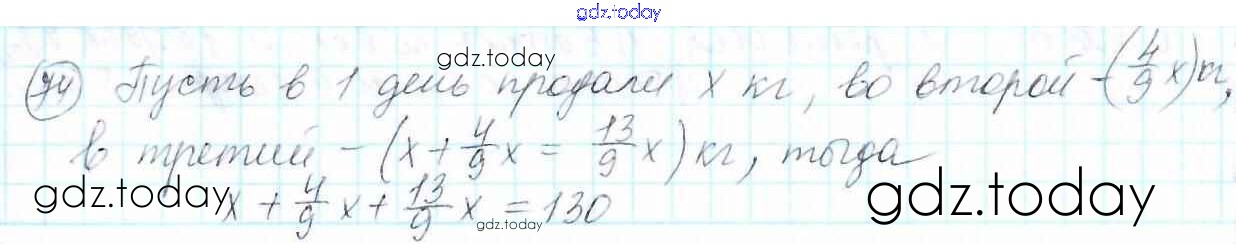 gdz.today
gdz.today
94 Пусть в 1 день продали x кг, во второй – (4/9 x) кг,
в третий – (x + 4/9 x = 13/9 x) кг, тогда
gdz.today gdz.today
x + 4/9 x + 13/9 x = 130
gdz.today